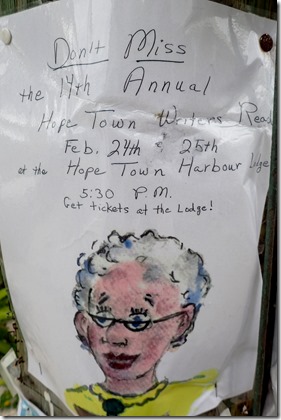 Don't Miss
the 14th Annual
Hope Town Writers Read
Feb. 24th & 25th
at the Hope Town Harbour Lodge
5:30 P.M.
Get tickets at the Lodge!